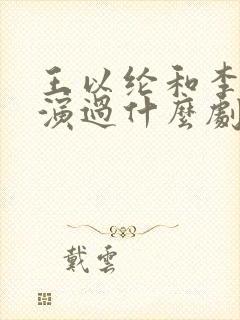 王以纶和李
演過什麼劇
戴雲